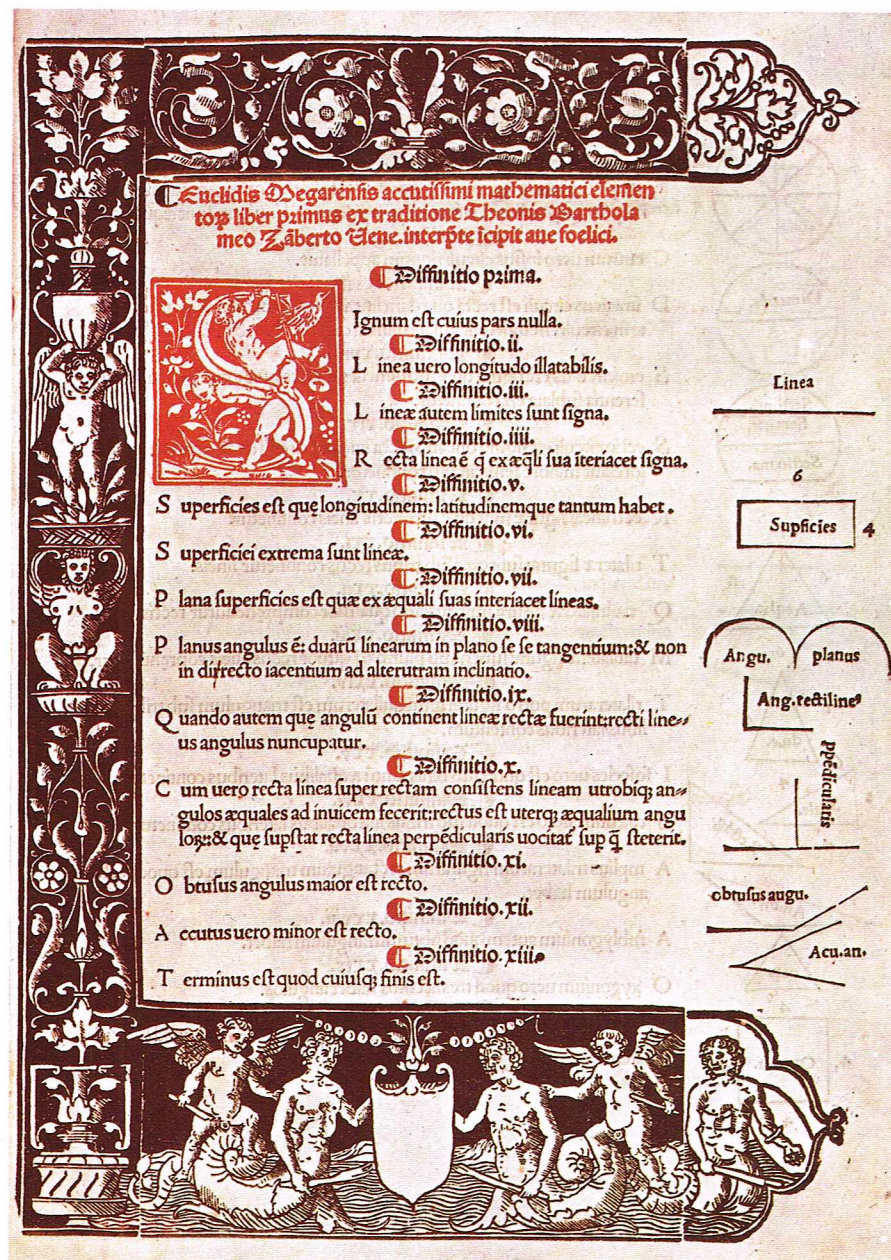 Euclidis Megarensis accutissimi mathematici elemen
toꝝ liber primus ex traditione Theonis Barthola
meo Zãberto Uene. interp̃te ĩcipit aue foelici.
Diffinitio prima.
SIgnum est cuius pars nulla.
Diffinitio.ii.
L inea uero longitudo illatabilis.
Diffinitio.iii.
L ineæ aũtem limites sunt signa.
Diffinitio.iiii.
R ecta linea ẽ q̃ ex æq̃li sua ĩteriacet signa.
Diffinitio.v.
S uperficies est quę longitudinem: latitudinemque tantum habet.
Diffinitio.vi.
S uperficiei extrema sunt lineæ.
Diffinitio.vii.
P lana superficies est quæ ex æquali suas interiacet lineas.
Diffinitio.viii.
P lanus angulus ẽ: duarũ linearum in plano se se tangentium: & non
in directo iacentium ad alterutram inclinatio.
Diffinitio.ix.
Q uando autem quę angulũ continent lineæ rectæ fuerint: recti line⸗
us angulus nuncupatur.
Diffinitio.x.
C um uero recta linea super rectam consistens lineam utrobiqꝫ an⸗
gulos æquales ad inuicem fecerit: rectus est uterqꝫ æqualium angu
loꝝ: & quę supstat recta linea perpẽdicularis uocitat᷑ sup q̃ steterit.
Diffinitio.xi.
O btusus angulus maior est recto.
Diffinitio.xii.
A ccutus uero minor est recto.
Diffinitio.xiii.
T erminus est quod cuiusqꝫ finis est.
Linea
6
Supficies 4
Angu. planus
Ang.rectilineꝰ
ppẽdicularis
obtusus augu.
Acu.an.